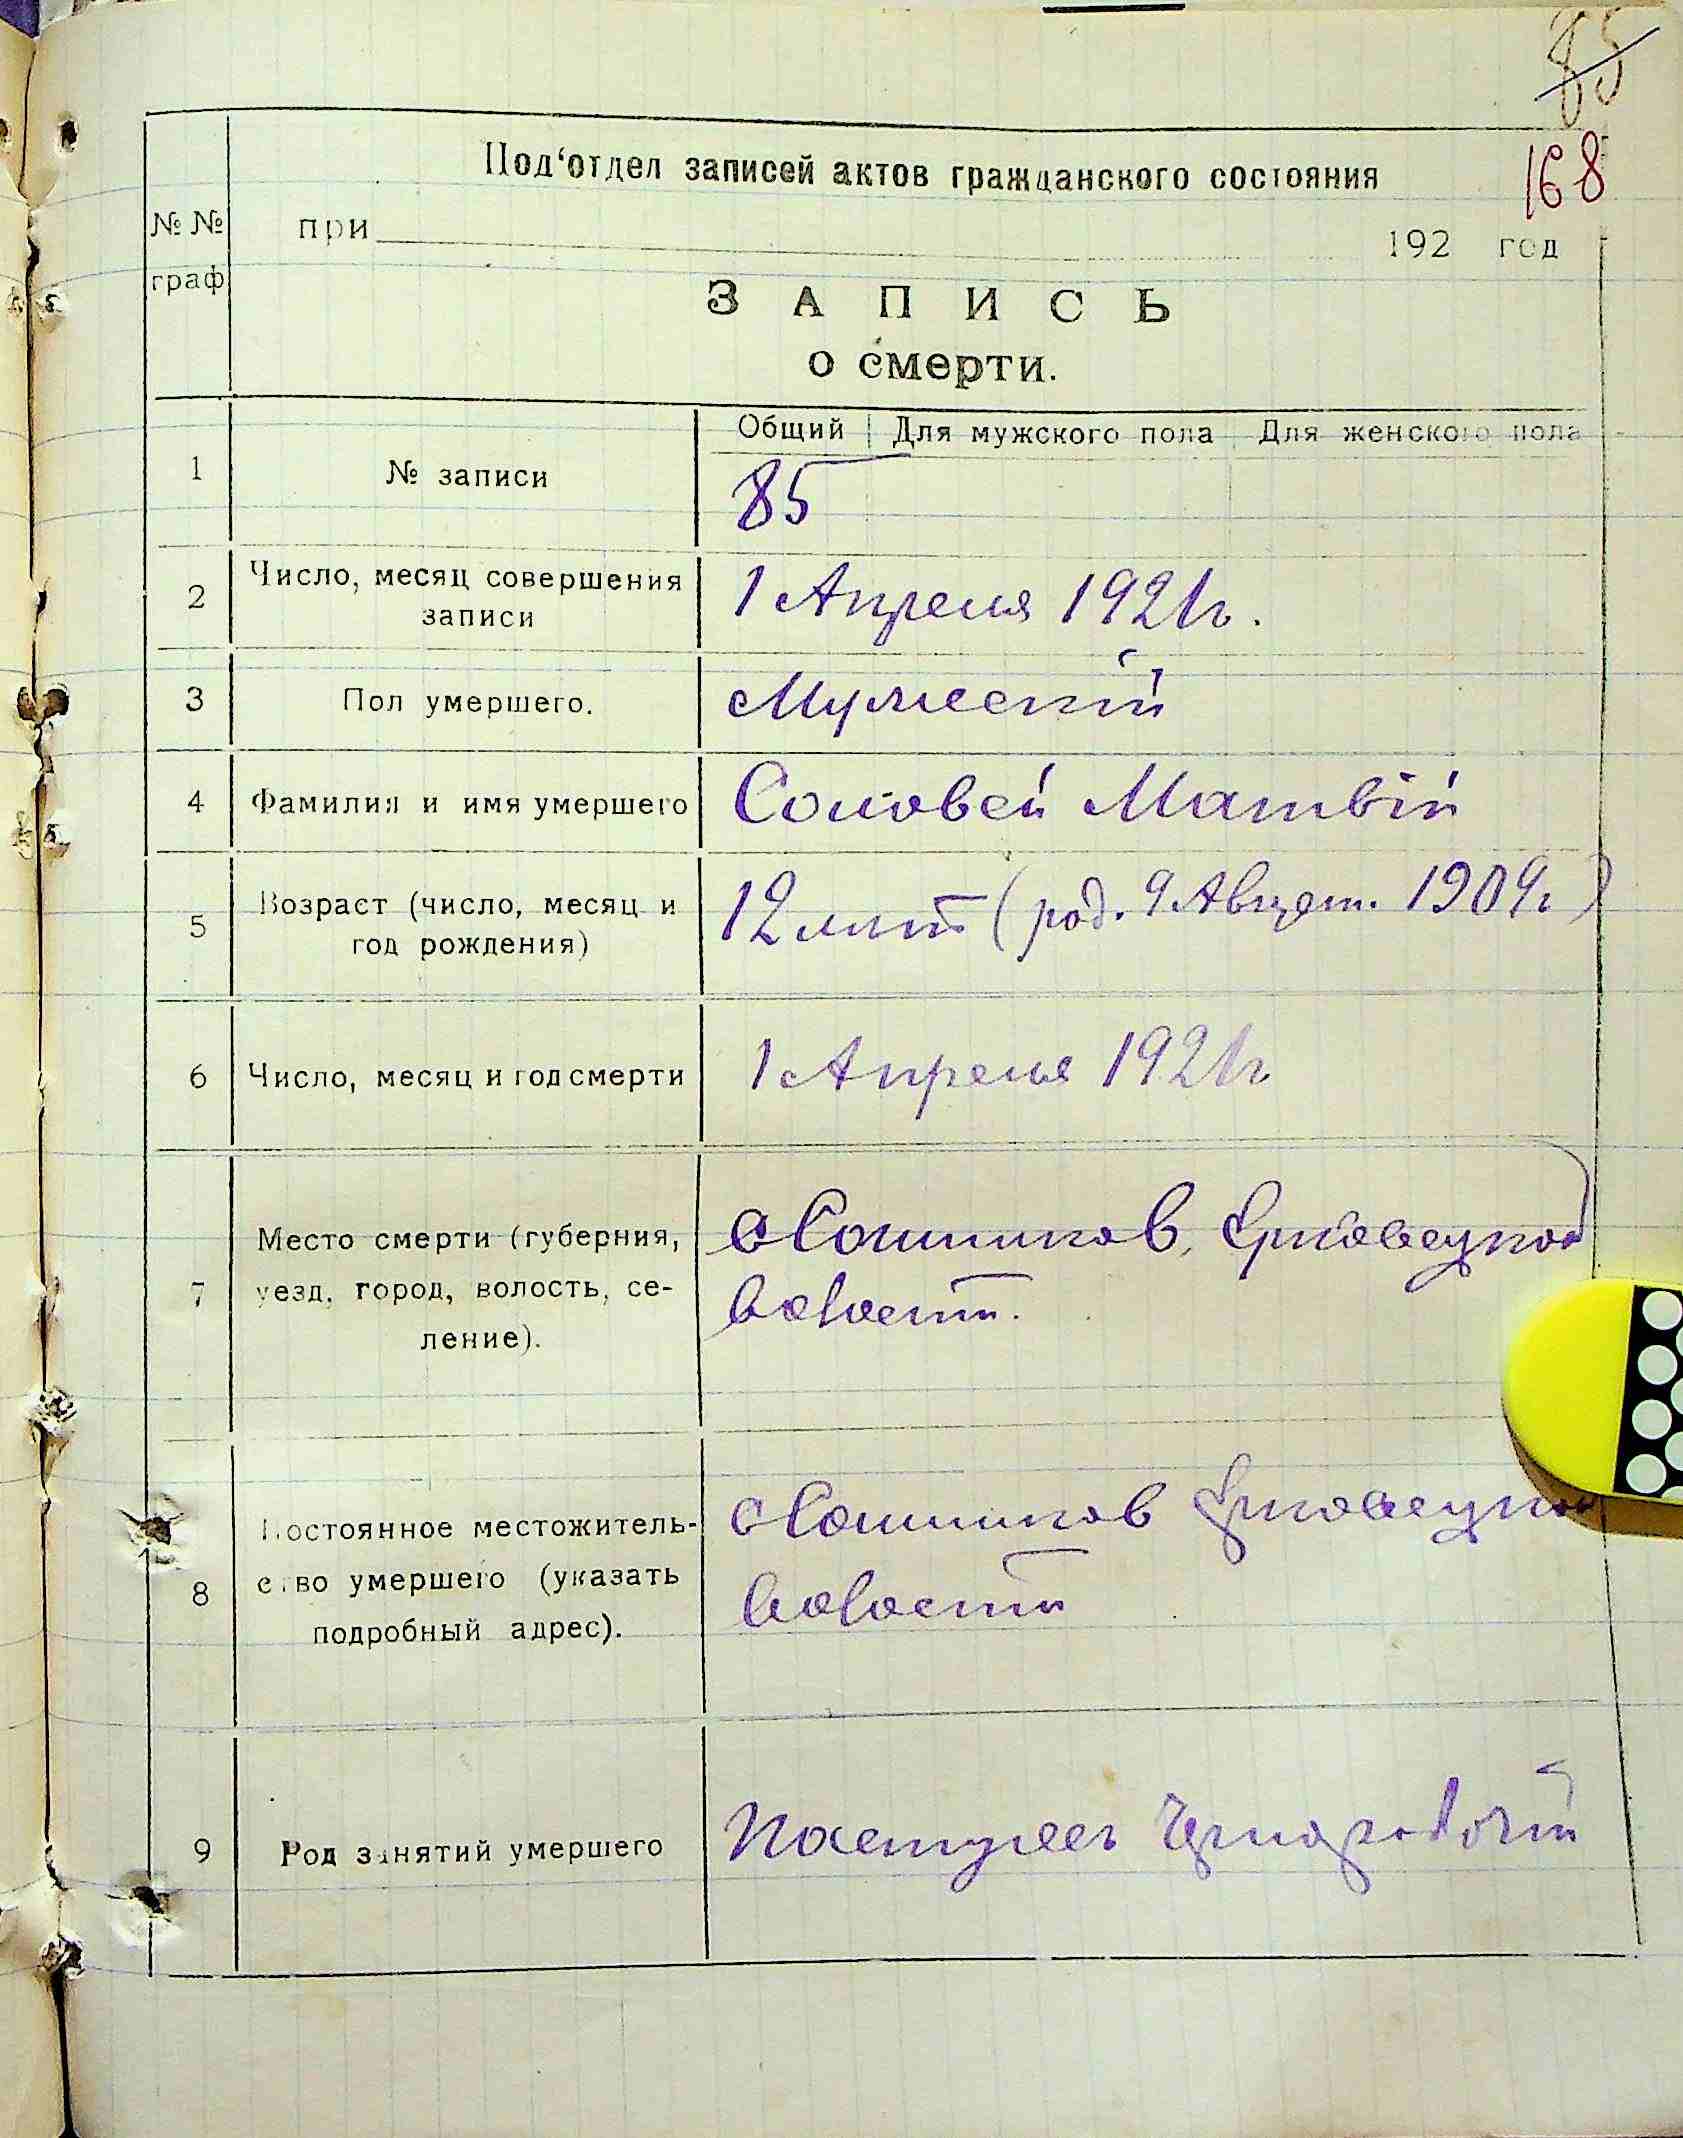 85
168
Под‘отдел записей актов гражданского состояния
№ №
граф
при 192 год
ЗАПИСЬ
о смерти.
Общий Для мужского пола Для женского пола
1 № записи 85
2 Число, месяц совершения записи 1 Апреля 1921 г.
3 Пол умершего. Мужескій
4 Фамилия и имя умершего Соловей Матвій
5 Возраст (число, месяц и 12 лит (род. 9 Август. 1909 г)
год рождения)
6 Число, месяц и год смерти 1 Апреля 1921 г
7 Место смерти (губерния, с Сошников, Ерковецкой
уезд, город, волость, се- волости.
ление).
8 Постоянное местожитель- с Сошников Ерковецкой
ство умершего (указать волости
подробный адрес).
9 Род занятий умершего